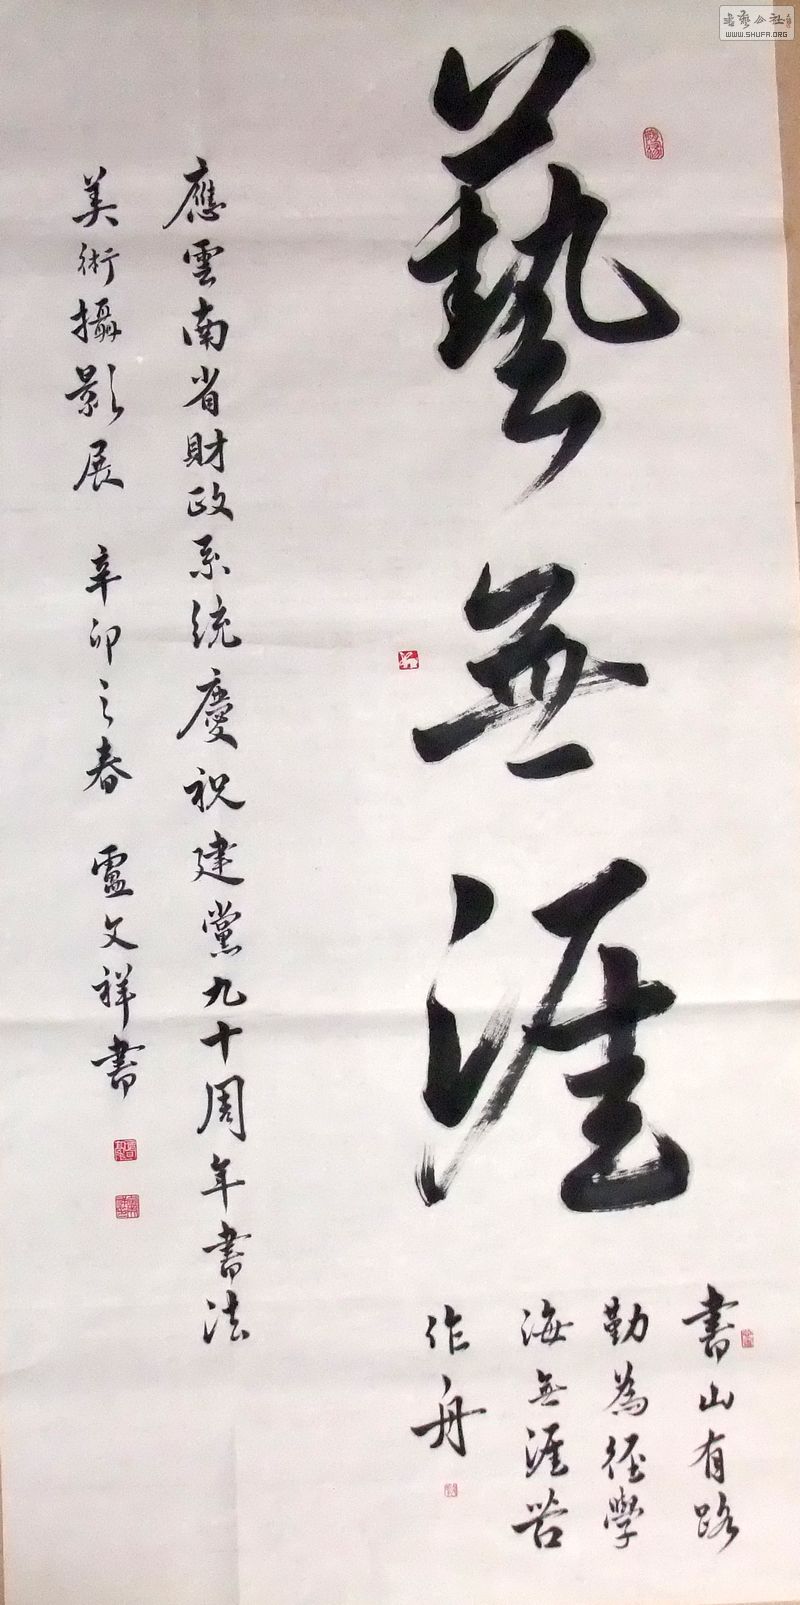 藝無涯
書山有路
勤為徑學
海無涯苦
作舟
應雲南省財政系統慶祝建黨九十周年書法
美術攝影展 辛卯之春 盧文祥書
书艺公社
WWW.SHUFA.ORG